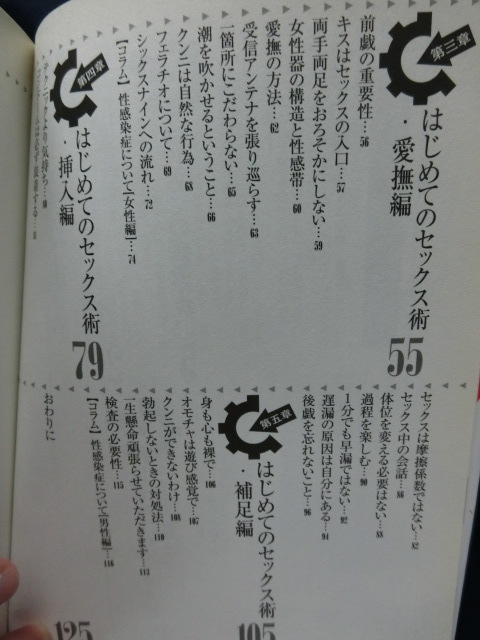 第三章
はじめてのセックス術
・愛撫編
55
前戯の重要性…56
キスはセックスの入口…57
両手両足をおろそかにしない…59
女性器の構造と性感帯…60
愛撫の方法…62
受信アンテナを張り巡らす…63
一箇所にこだわらない…65
潮を吹かせるということ…66
クンニは自然な行為…68
フェラチオについて…69
シックスナインへの流れ…72
【コラム】性感染症について【女性編】…74
第四章
はじめてのセックス術
・挿入編
79
テクニックより気持ち…80
セックスは摩擦係数ではない…82
セックス中の会話…86
体位を変える必要はない…88
過程を楽しむ…90
1分でも早漏ではない…92
遅漏の原因は自分にある…94
後戯を忘れないこと…96
第五章
はじめてのセックス術
・補足編
105
身も心も裸で…106
オモチャは遊び感覚で…107
クンニができないわけ…108
勃起しないときの対処法…110
一生懸命頑張らせていただきます…113
検査の必要性…115
【コラム】性感染症について【男性編】…116
おわりに
125